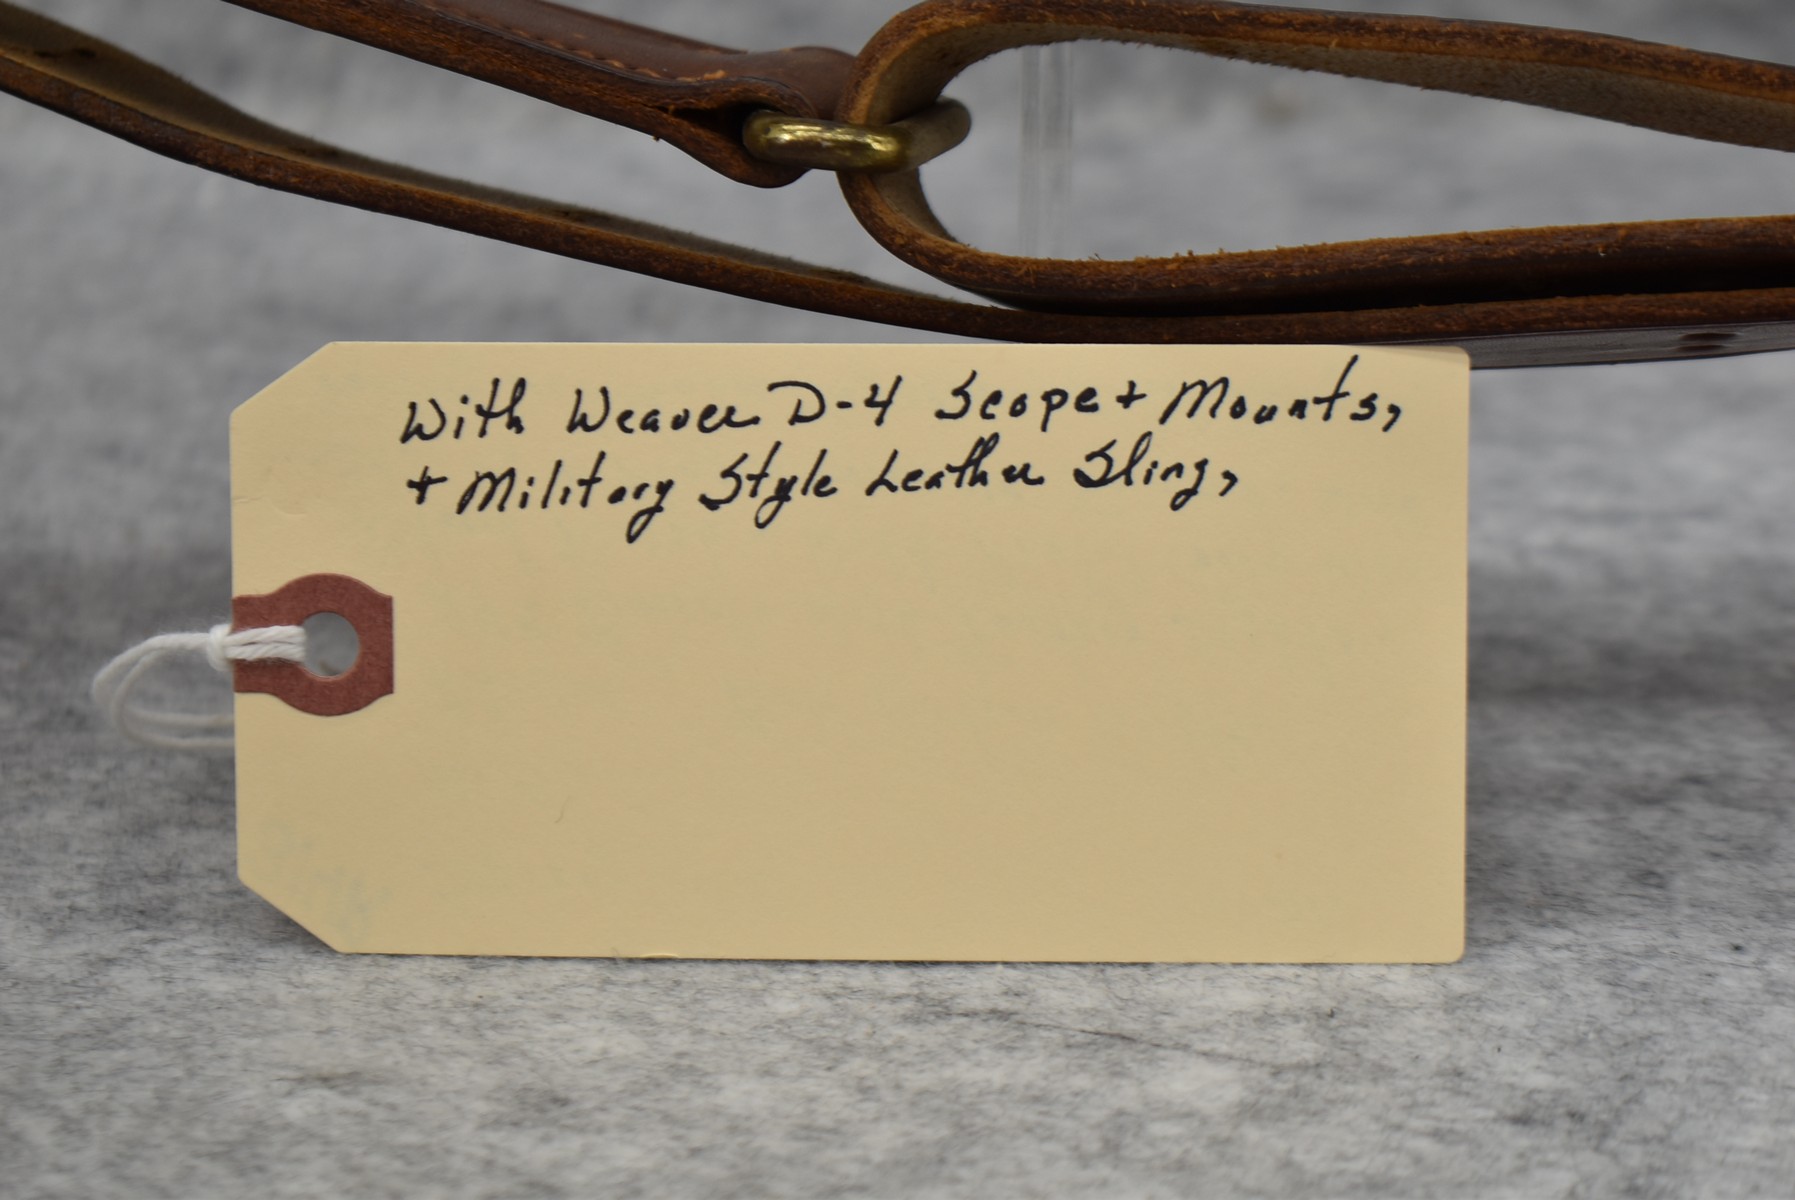 With Weaver D-4 Scope + Mounts,
+ Military Style Leather Sling,